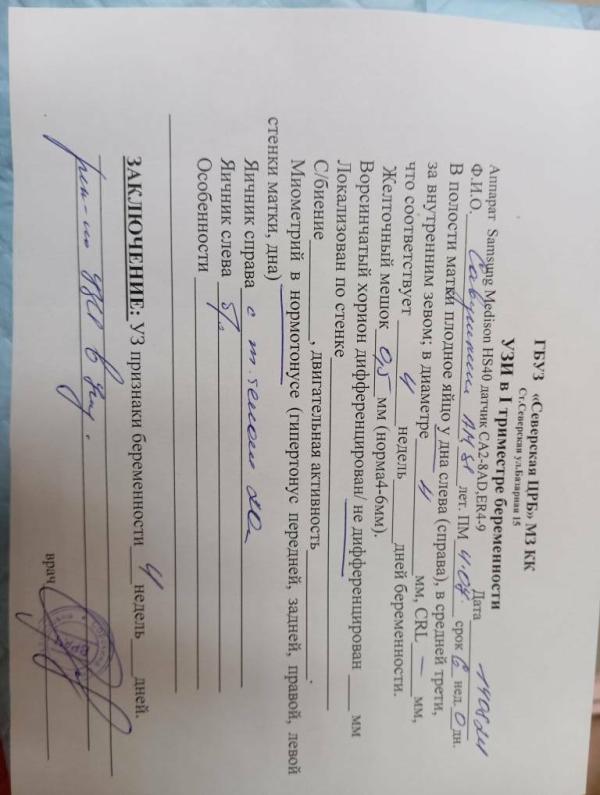 ГБУЗ «Северская ЦРБ» МЗ КК
Ст.Северская ул.Базарная 15
УЗИ в I триместре беременности
Аппарат Samsung Medison HS40 датчик CA2-8AD,ER4-9 Дата
Ф.И.О. АМ лет. ПМ 4.04. срок 6 нед. 0 дн.
В полости матки плодное яйцо у дна слева (справа), в средней трети,
за внутренним зевом; в диаметре 4 мм, CRL — мм,
что соответствует 4 недель дней беременности.
Желточный мешок 0,5 мм (норма4-6мм).
Ворсинчатый хорион дифференцирован/ не дифференцирован мм
Локализован по стенке
С/биение , двигательная активность .
Миометрий в нормотонусе (гипертонус передней, задней, правой, левой
стенки матки, дна)
Яичник справа с ж. телом
Яичник слева б/о
Особенности
ЗАКЛЮЧЕНИЕ: УЗ признаки беременности 4 недель дней.
УЗИ в дин.
врач